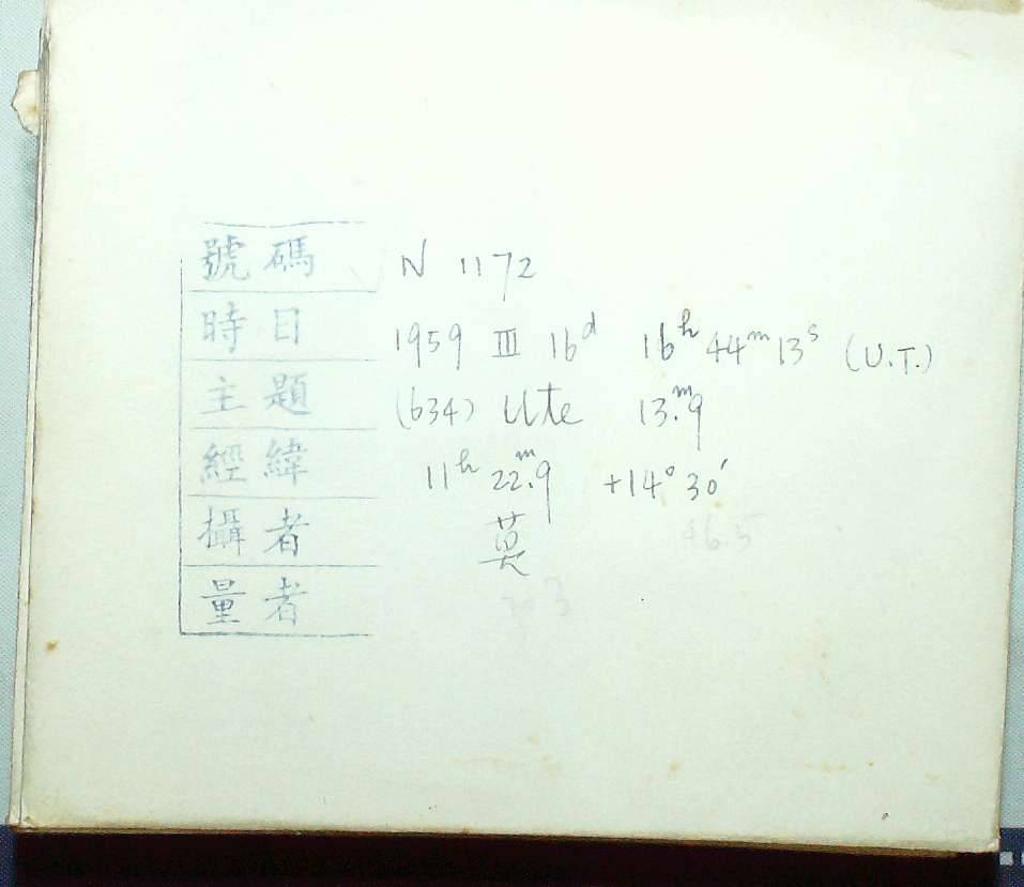 號碼 N 1172
時日 1959 III 16ᵈ 16ʰ 44ᵐ 13ˢ (U.T.)
主題 (634) Ute 13.ᵐ9
經緯 11ʰ 22.ᵐ9 +14° 30′
攝者 莫
量者